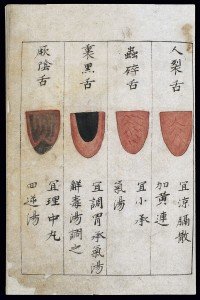 人裂舌
宜涼膈散
加黄連
蟲碎舌
宜小承
氣湯
裏黑舌
宜調胃承氣湯
解毒湯調之
厥陰舌
宜理中丸
四逆湯